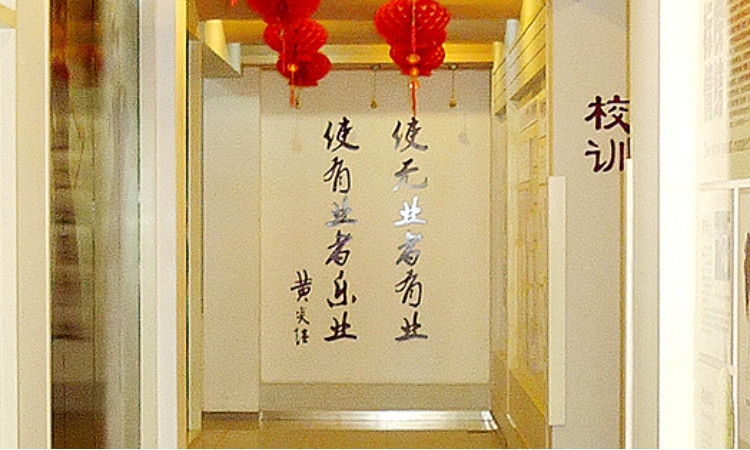 使无业者有业
使有业者乐业
黄炎培
校训